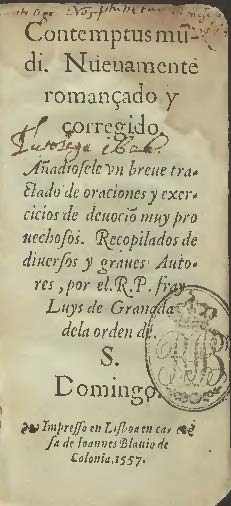 Contemptus mū
di. Nueuamente
romançado y
corregido.
Añadiosele vn breue tra-
ctado de oraciones y exer-
cicios de deuociō muy pro
uechosos. Recopilados de
diuersos y graues Auto-
res, por el. R. P. fray
Luys de Granada
dela orden de.
S.
Domingo.
Impresso en Lisboa en ca-
sa de Ioannes Blauio de
Colonia, 1557.